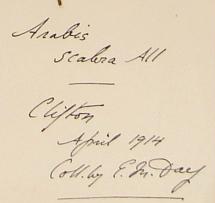 Arabis
scabra All
Clifton
April 1914
Coll. by E. M. Day